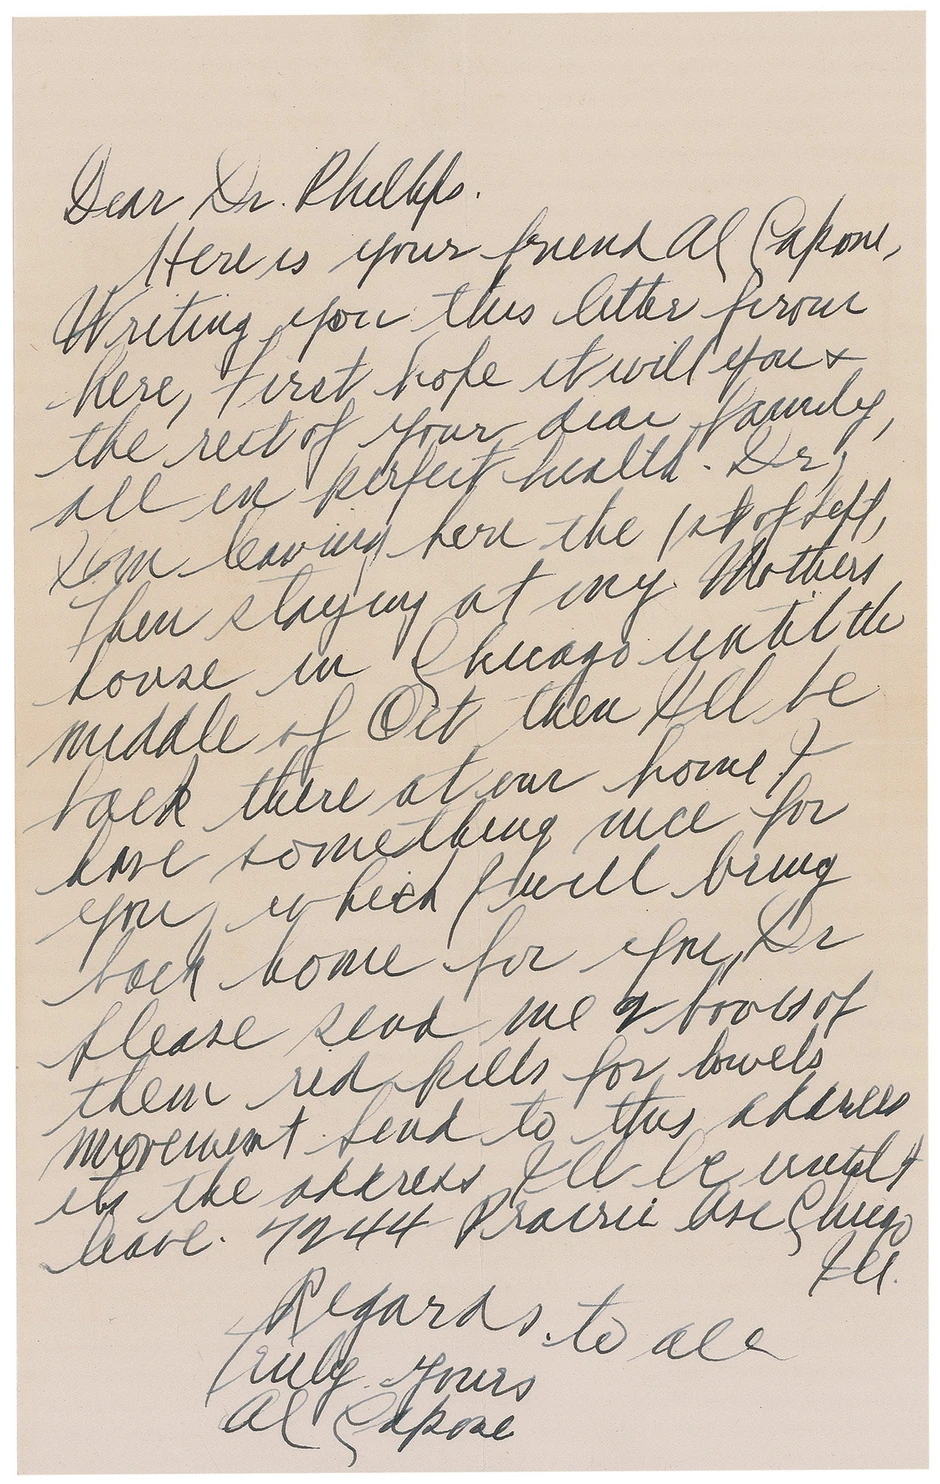 Dear Dr. Phellps.
Here is your friend Al Capone,
Writing you this letter from
here, First hope it will you &
the rest of your dear family,
all in perfect health. Dr,
I'm leaving here the 1st of Sept,
Then staying at my Mothers
house in Chicago until the
middle of Oct then I'll be
back there at our home, I
have something nice for
you, which I will bring
back home for you, Dr
please send me 2 boxes of
them red pills for bowels
movement. Send to this address
its the address I'll be until I
leave. 7244 Prairie Ave Chicago
Ill.
Regards. to all
Truly yours
Al Capone